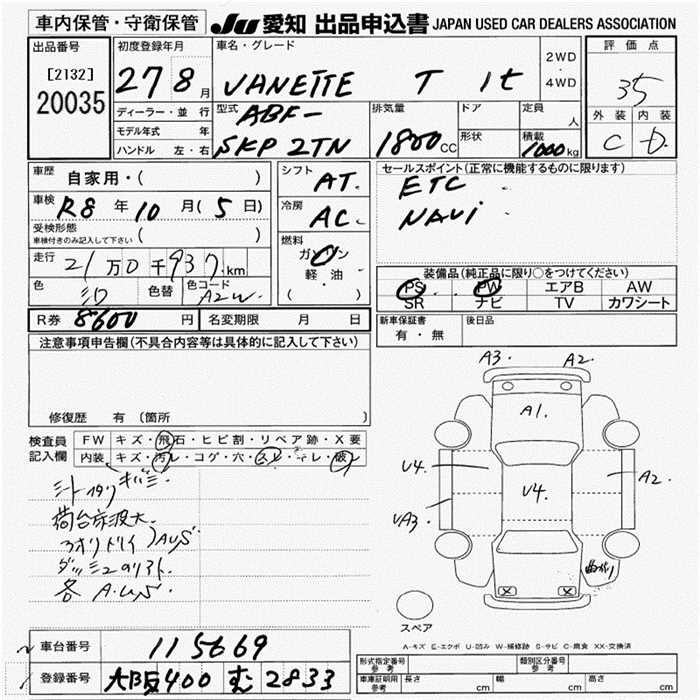 車内保管・守衛保管 JU 愛知 出品申込書 JAPAN USED CAR DEALERS ASSOCIATION
出品番号 初度登録年月 車名・グレード 評価点
[2132] 20035
27 8月 VANETTE T 1t 2WD・4WD 35
ディーラー・並行 型式 ABF- 排気量 ドア 定員 人 外装 内装
モデル年式 年 形状 積載
ハンドル 左・右 SKP2TN 1800CC 1000kg C D
車歴 自家用・( ) シフト AT. セールスポイント(正常に機能するものに限ります)
ETC
車検 R8年10月(5日) 冷房 AC NAVi
受検形態
車検付きのみ記入して下さい ( ) 燃料 ガソリン
走行 21万0千937km 軽・油 装備品(純正品に限り○をつけてください)
PS PW エアB AW
色 色替 色コード A2W ( ) SR ナビ TV カワシート
R券 8600円 名変期限 月 日 新車保証書 後日品
有・無
注意事項申告欄(不具合内容等は具体的に記入して下さい)
A3. A2.
A1.
修復歴 有(箇所
検査員 FW キズ・飛石・ヒビ割・リペア跡・X要
記入欄 内装 キズ・汚レ・コゲ・穴・スレ・キレ・破レ
U4. V4. A2.
UA3.
荷台床波大
各 A.U.S.
スペア
A-キズ E-エクボ U-凹み W-補修跡 S-サビ C-腐食 XX-交換済
車台番号 115669
形式指定番号 参考 類別区分番号 参考
登録番号 大阪400 む 2833
車庫証明用 参考 長さ cm 幅 cm 高さ cm